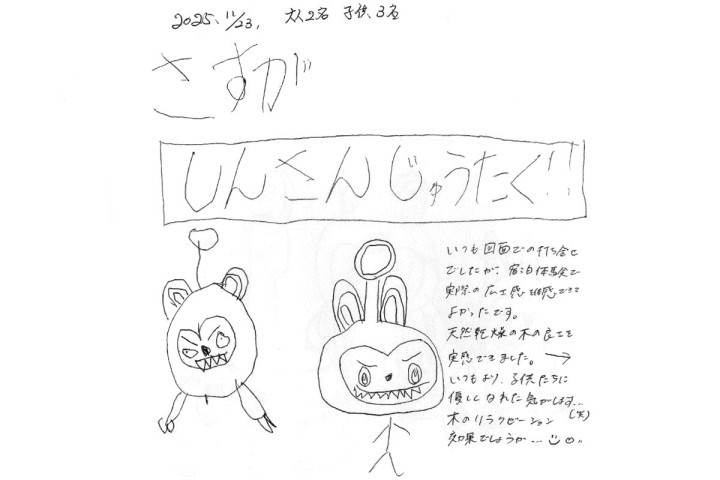 2025, 11/23, 大人2名 子供、3名
さすが
しんさんじゅうたく!!
いつも図面での打ち合せ
でしたが、宿泊体験で
実際の広さ感を体感できて
よかったです。
天然乾燥の木の良さを
実感できました。→
いつもより、子供たちに
優しくなれた気がします…(笑)
木のリラクゼーション
効果でしょうか…